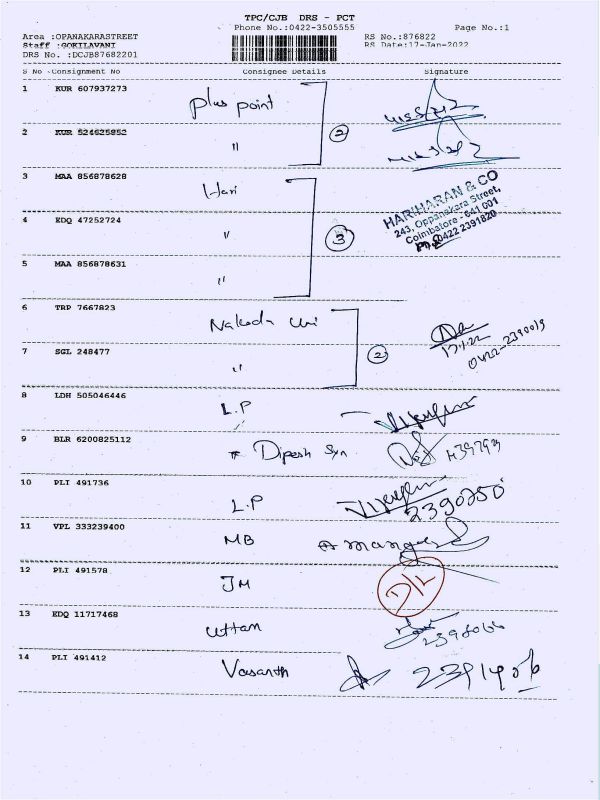 TPC/CJB DRS - PCT
Phone No.:0422-3505555 Page No.:1
Area :OPANAKARASTREET RS No.:876822
Staff :GOKILAVANI RS Date:17-Jan-2022
DRS No. :DCJB87682201
S No Consignment No Consignee Details Signature
1 KUR 607937273 Plus point
2
2 KUR 524625852 "
3 MAA 856878628 Hari
HARIHARAN & CO
243, Oppanakara Street,
Coimbatore - 641 001
0422 2391820
4 EDQ 47252724 "
3
5 MAA 856878631 "
6 TRP 7667823 Nakoda Uni
17.1.22
0422-2390019
7 SGL 248477 "
2
8 LDH 505046446 L.P
9 BLR 6200825112 * Dipesh Syn
10 PLI 491736 L.P 2390250
11 VPL 333239400 MB
12 PLI 491578 JM D/L
13 EDQ 11717468 Uttam
14 PLI 491412 Vasanth